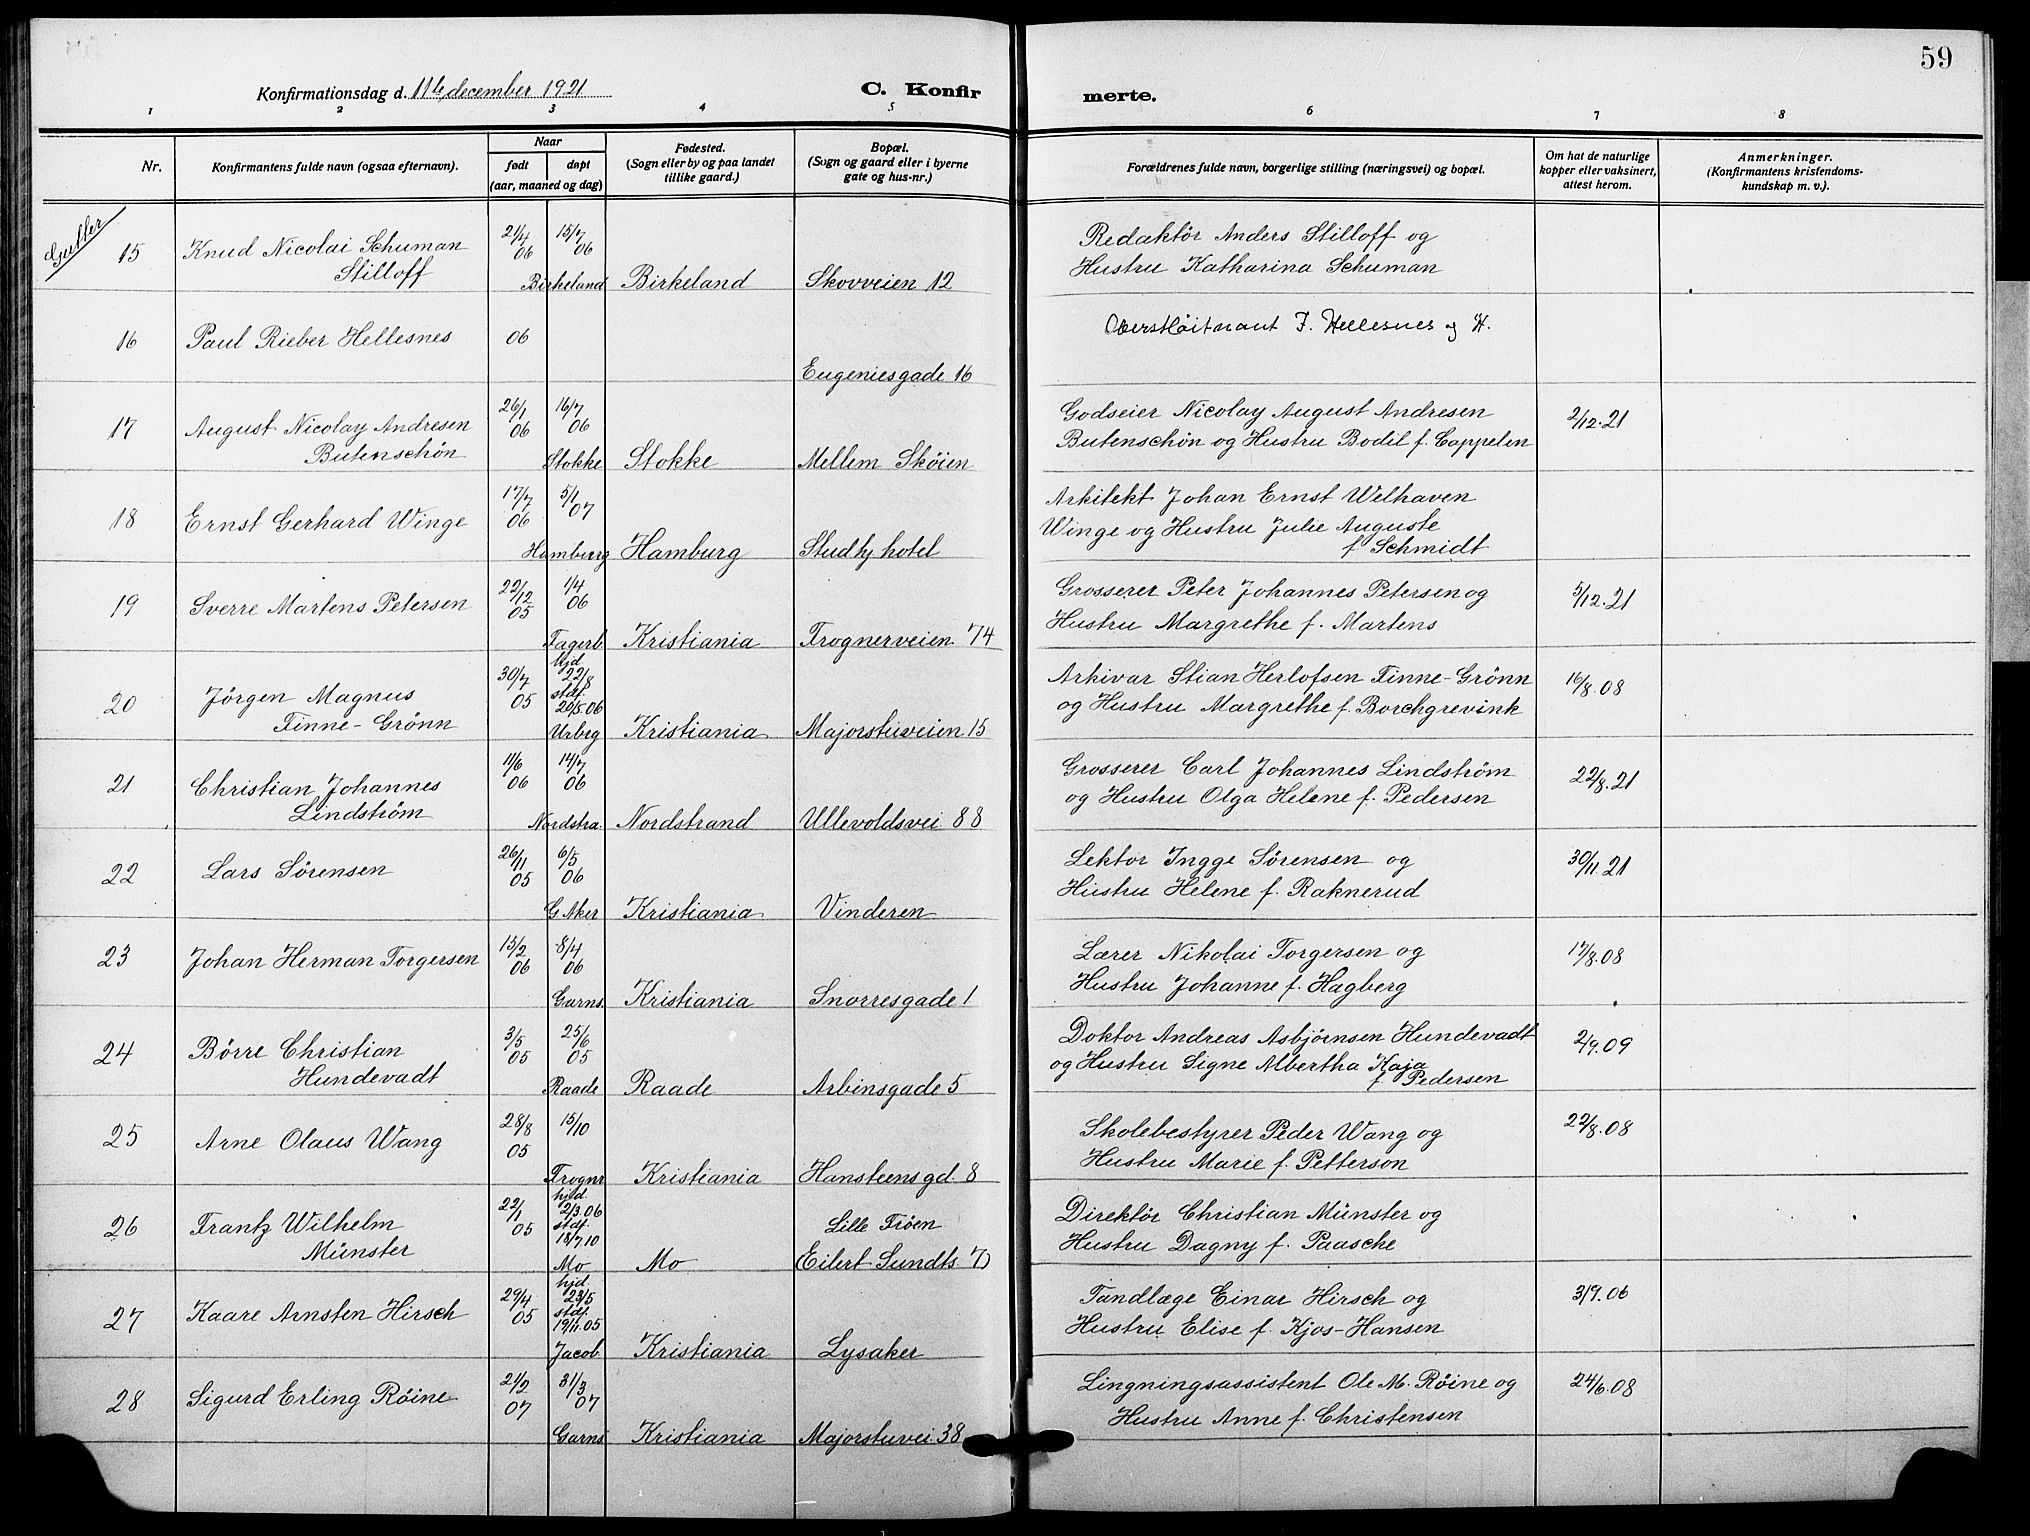 59
Konfirmationsdag d. 11te december 1921
C. Konfir
merte.
1 2 3 4 5 6 7 8
Nr.
Konfirmantens fulde navn (ogsaa efternavn).
Naar
født døpt
(aar, maaned og dag)
Fødested.
(Sogn eller by og paa landet
tillike gaard.)
Bopæl.
(Sogn og gaard eller i byerne
gate og hus-nr.)
Forældrenes fulde navn, borgerlige stilling (næringsvei) og bopæl.
Om hat de naturlige
kopper eller vaksinert,
attest herom.
Anmerkninger.
(Konfirmantens kristendoms-
kundskap m. v.).
Gutter
15 Knud Nicolai Schuman 21/4 15/7 Redaktör Anders Stilloff og
Stilloff 06 06 Hustru Katharina Schuman
Birkeland Birkeland Skovveien 12
16 Paul Rieber Hellesnes 06 Oberstløitnant J. Hellesnes og H.
Eugeniesgade 16
17 August Nicolay Andresen 26/1 16/7 Godseier Nicolay August Andresen 2/12.21
Butenschön 06 06 Butenschön og Hustru Bodil f. Cappelen
Stokke Stokke Mellem Sköien
18 Ernst Gerhard Winge 17/7 5/1 Arkitekt Johan Ernst Welhaven
06 07 Winge og Hustru Julie Auguste
f Schmidt
Hamburg Hamburg Studty hotel
19 Sverre Martens Petersen 22/12 1/4 Grosserer Peter Johannes Petersen og 5/12.21
05 06 Hustru Margrethe f. Martens
Fagerb. Kristiania Frognerveien 74
20 Jörgen Magnus 30/7 hjd 22/8 Arkivar Stian Herlofsen Finne-Grönn 16/8.08
Finne-Grönn 05 stdf. 20/5.06 og Hustru Margrethe f. Borchgrevink
Urbrg Kristiania Majorstuveien 15
21 Christian Johannes 11/6 14/7 Grosserer Carl Johannes Lindström 22/8.21
Lindström 06 06 og Hustru Olga Helene f. Pedersen
Nordstra. Nordstrand Ullevoldsvei 88
22 Lars Sörensen 26/11 6/5 Lektor Ingge Sörensen og 30/11.21
05 06 Hustru Helene f. Raknerud
G Aker Kristiania Vinderen
23 Johan Herman Torgersen 15/2 8/4 Lærer Nikolai Torgersen og 17/8.08
06 06 Hustru Johanne f. Hagberg
Garns. Kristiania Snorresgade 1
24 Börre Christian 3/5 25/6 Doktor Andreas Asbjörnsen Hundevadt 2/9.09
Hundevadt 05 05 og Hustru Signe Albertha Kaja
f Pedersen
Raade Raade Arbinsgade 5
25 Arne Olaus Wang 28/8 15/10 Skolebestyrer Peder Wang og 22/8.08
05 Hustru Marie f. Petterson
Frognr Kristiania Hansteensgd. 8
26 Frantz Wilhelm 22/1 hjd. 2/3.06 Lille Fröen Direktör Christian Münster og
Münster 05 stdf. 18/7 10 Hustru Dagny f. Paasche
Mo Mo (Eilert Sundts. 7)
27 Kaare Arnsten Hirsch 29/4 hjd. 23/5 Tandlæge Einar Hirsch og 3/9.06
05 stdf. 19/11.05 Hustru Elise f. Kjos-Hansen
Jacob Kristiania Lysaker
28 Sigurd Erling Röine 21/2 31/3 Lingningsassistent Ole M. Röine og 24/6.08
07 07 Hustru Anne f. Christensen
Garns Kristiania Majorstuvei. 38